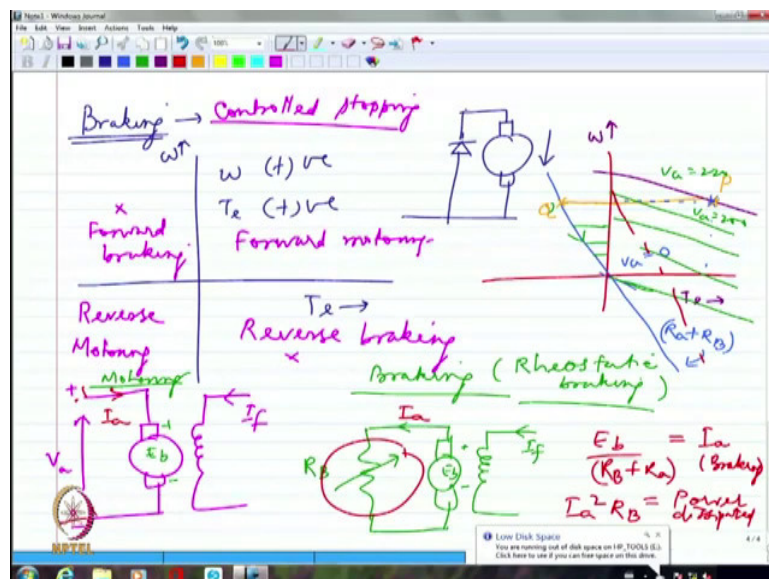 Note1 - Windows Journal
File Edit View Insert Actions Tools Help
100%
B I
Braking → Controlled stopping
ω↑
ω (+) ve
Te (+) ve
Forward motoring
×
Forward braking
Te →
Reverse Motoring
Reverse braking
×
ω↑
Va = 220
P
Q
Va = 200
Va = 0
Te →
(Ra + RB)
Motoring
+
Ia
Va
+
Eb
-
If
Braking (Rheostatic braking)
Ia
RB
+
+
Eb
-
If
Eb / (RB + Ra) = Ia (Braking)
Ia² RB = Power dissipated
NPTEL
Low Disk Space
You are running out of disk space on HP_TOOLS (E:).
Click here to see if you can free space on this drive.
4/4